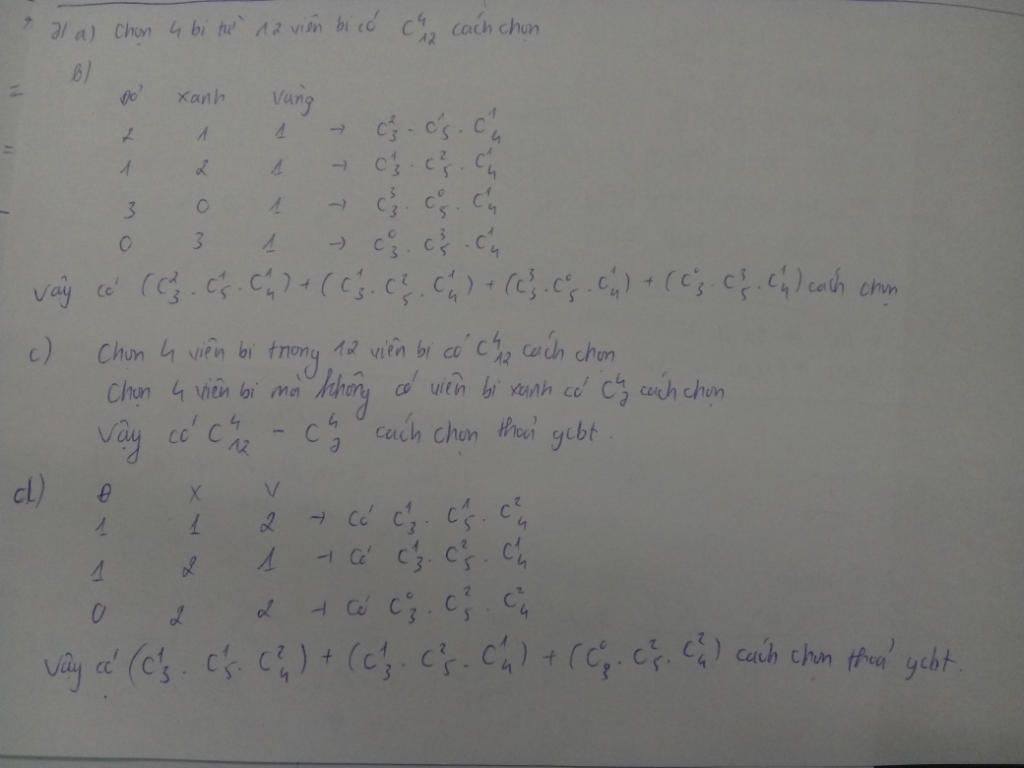 a) Chọn 4 bi từ 12 viên bi có C₁₂⁴ cách chọn
b)
Đỏ Xanh Vàng
2 1 1 → C₃² . C₅¹ . C₄¹
1 2 1 → C₃¹ . C₅² . C₄¹
3 0 1 → C₃³ . C₅⁰ . C₄¹
0 3 1 → C₃⁰ . C₅³ . C₄¹
Vậy có (C₃² . C₅¹ . C₄¹) + (C₃¹ . C₅² . C₄¹) + (C₃³ . C₅⁰ . C₄¹) + (C₃⁰ . C₅³ . C₄¹) cách chọn
c) Chọn 4 viên bi trong 12 viên bi có C₁₂⁴ cách chọn
Chọn 4 viên bi mà không có viên bi xanh có C₇⁴ cách chọn
Vậy có C₁₂⁴ - C₇⁴ cách chọn thoả ycbt.
d) Đ X V
1 1 2 → Có C₃¹ . C₅¹ . C₄²
1 2 1 → Có C₃¹ . C₅² . C₄¹
0 2 2 → Có C₃⁰ . C₅² . C₄²
Vậy có (C₃¹ . C₅¹ . C₄²) + (C₃¹ . C₅² . C₄¹) + (C₃⁰ . C₅² . C₄²) cách chọn thoả ycbt.